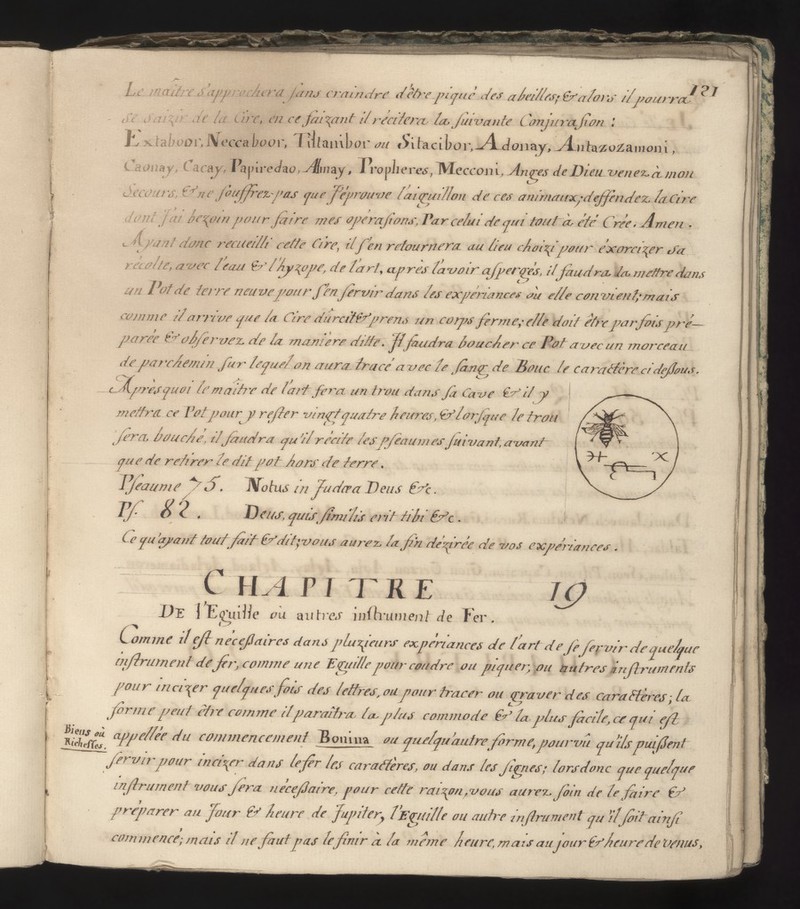 121
Le maître s'approchera sans craindre d'être piqué des abeilles; & alors il pourra
se saizir de la Cire, en ce faizant il récitera la suivante Conjurasion :
Extabor, Neccaboor, Tiltanibor ou Sitacibor, Adonay, Antazozamoni,
Caonay, Cacay, Papiredao, Almay, Propheres, Mecconi, Anges de Dieu venez à mon
Secours, & ne souffrez-pas que J'éprouve l'aiguillon de ces animaux; deffendez la Cire
dont j'ai bezoin pour faire mes opérasions, Par celui de qui tout à été Crée. Amen.
Ayant donc recueilli cette Cire, il s'en retournera au lieu choizi pour éxorcizer sa
récolte, avec l'eau & l'hyzope, de l'art, après l'avoir aspergés, il faudra la mettre dans
un Pot de terre neuve pour s'en servir dans les expériances où elle convient; mais
comme il arrive que la Cire dûrcit & prens un corps ferme; elle doit être parfois pré-
parée & observez de la manière ditte. Il faudra boucher ce Pot avec un morceau
de parchemin sur lequel on aura tracé avec le sang de Bouc le caractère ci deßous.
Après quoi le maître de l'art fera un trou dans sa Cave & il y
mettra ce Pot pour y rester vingt quatre heures, & lorsque le trou
sera bouché, il faudra qu'il récite les pseaumes suivant, avant
que de retirer le dit pot hors de terre.
Pseaume 75. Notus in Judæa Deus &c.
Ps. 82. Deus, quis similis erit tibi &c.
Ce qu'ayant tout fait & dit; vous aurez la fin dézirée de vos expériances.
CHAPITRE 19
DE l'Eguille où autres instrument de Fer.
Comme il est néceßaires dans pluzieurs expériances de l'art de se servir de quelque
instrument de fer, comme une Eguille pour coudre ou piquer, ou autres instruments
pour incizer quelques fois des lettres, ou pour tracer ou graver des caractères; la
forme peut être comme il paraîtra la plus commode & la plus facile, ce qui est
Biens où
Richesses.
appellée du commencement Bonina ou quelqu'autre forme, pourvû qu'ils puißent
servir pour incizer dans le fer les caractères, ou dans les signes; lors donc que quelque
instrument vous sera néceßaire, pour cette raizon, vous aurez soin de le faire &
préparer au Jour & heure de Jupiter, l'Eguille ou autre instrument qu'il soit ainsi
commencé; mais il ne faut pas le finir à la même heure, mais au jour & heure de venus,